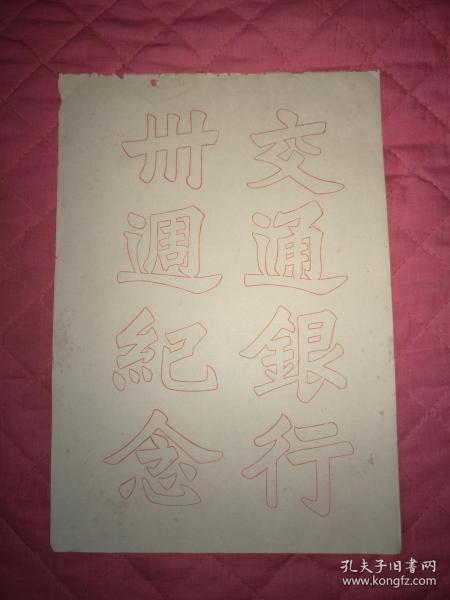 交通銀行
卅週紀念
孔夫子旧书网
www.kongfz.com